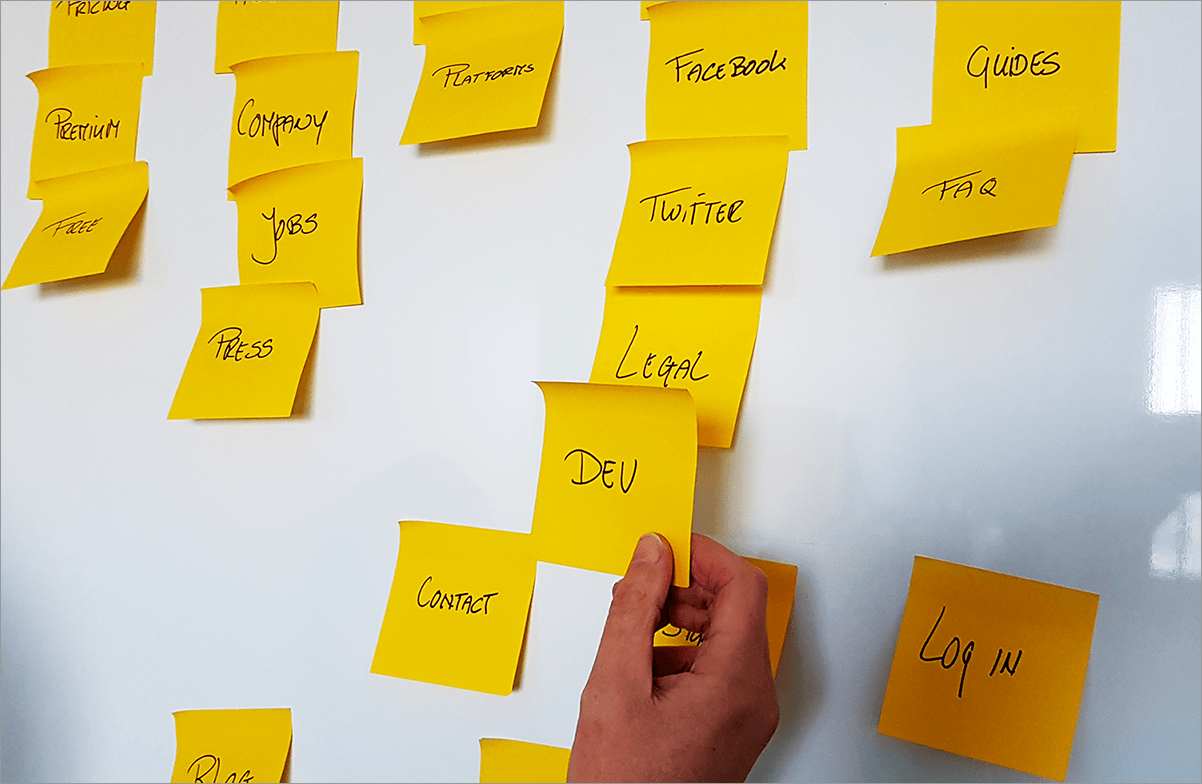 PRICING
PREMIUM
FREE
COMPANY
JOBS
PRESS
PLATFORMS
FACEBOOK
TWITTER
LEGAL
DEV
CONTACT
GUIDES
FAQ
LOG IN
BLOG